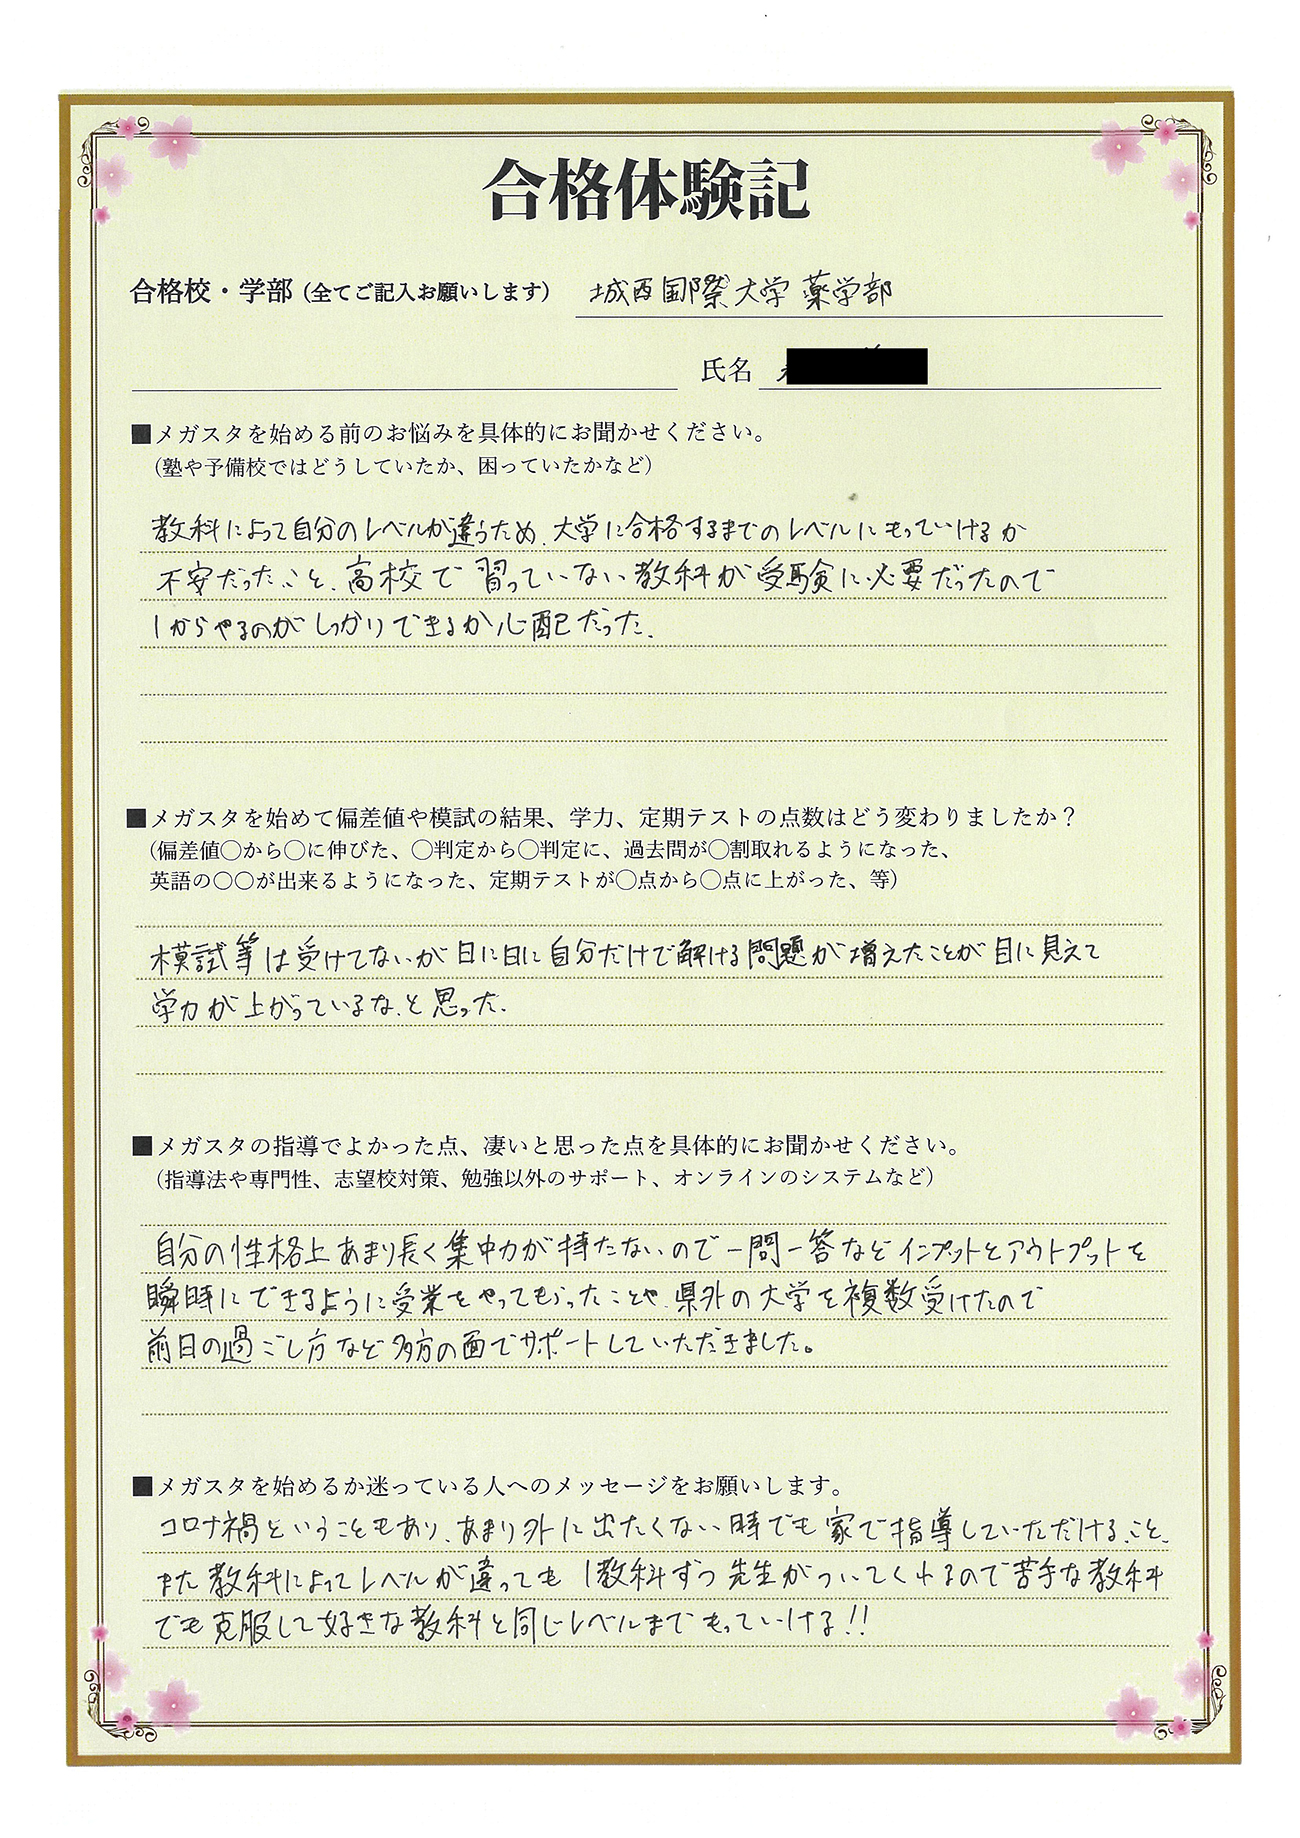 合格体験記
合格校・学部（全てご記入お願いします） 城西国際大学 薬学部
氏名
■メガスタを始める前のお悩みを具体的にお聞かせください。
（塾や予備校ではどうしていたか、困っていたかなど）
教科によって自分のレベルが違うため、大学に合格するまでのレベルにもっていけるか
不安だったこと、高校で習っていない教科が受験に必要だったので
1からやるのがしっかりできるか心配だった。
■メガスタを始めて偏差値や模試の結果、学力、定期テストの点数はどう変わりましたか？
（偏差値〇から〇に伸びた、〇判定から〇判定に、過去問が〇割取れるようになった、
英語の〇〇が出来るようになった、定期テストが〇点から〇点に上がった、等）
模試等は受けてないが日に日に自分だけで解ける問題が増えたことが目に見えて
学力が上がっているな、と思った。
■メガスタの指導でよかった点、凄いと思った点を具体的にお聞かせください。
（指導法や専門性、志望校対策、勉強以外のサポート、オンラインのシステムなど）
自分の性格上あまり長く集中力が持たないので一問一答などインプットとアウトプットを
瞬時にできるように受業をやってもらったことや、県外の大学を複数受けたので
前日の過ごし方など多方の面でサポートしていただきました。
■メガスタを始めるか迷っている人へのメッセージをお願いします。
コロナ禍ということもあり、あまり外に出たくない時でも家で指導していただけること、
また教科によってレベルが違っても1教科ずつ先生がついてくれるので苦手な教科
でも克服して好きな教科と同じレベルまでもっていける!!